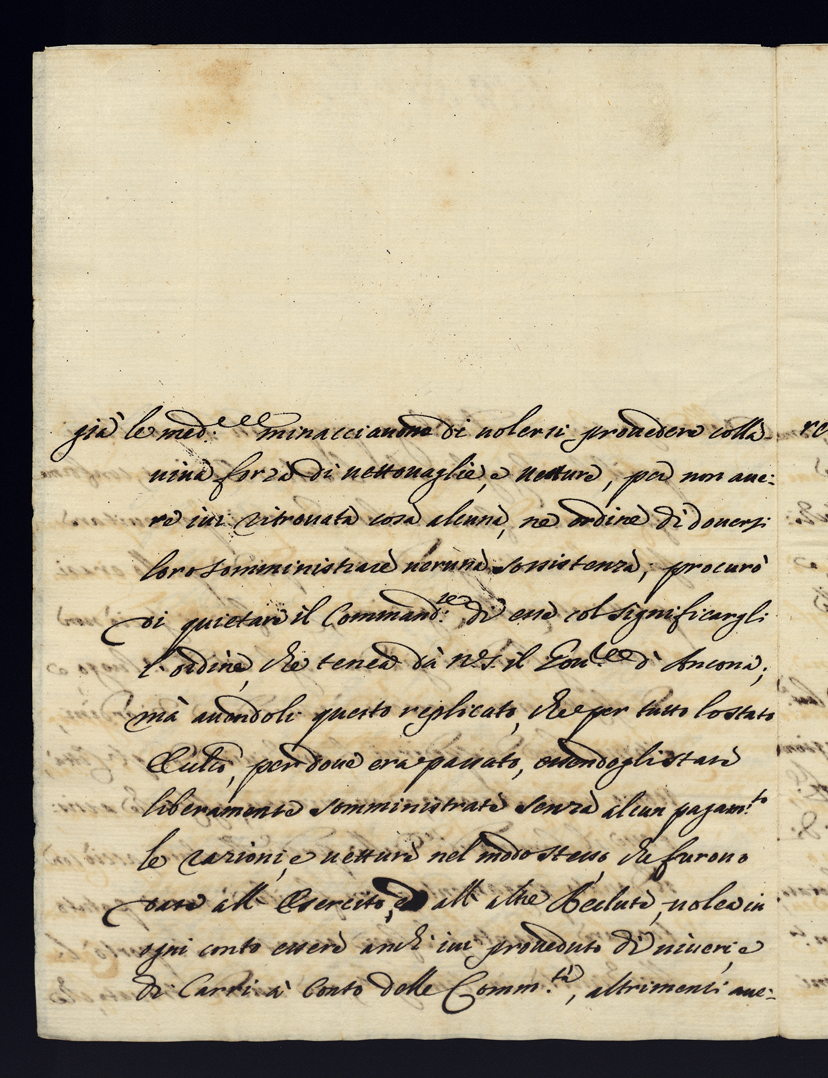 già le med.me minacciauono di uolersi prouedere colla
uiua forza di uettouaglie, e uetture, per non aue:
re iui ritrouata cosa alcuna, ne ordine di douersi
loro somministrare ueruna sossistenza, procurò
di quietare il Command.te di esse col significargli
l'ordine, che tenea dà il Gou.re d'Ancona;
mà auendoli questo replicato, che per tutto lo stato
Eccl.co, per doue era passato, essendogli state
liberamente somministrate senza alcun pagam.to
le razioni, e uetture nel modo stesso, che furono
date all'Esercito, ed all'altre Reclute, uolea in
ogni conto essere anch'iui proueduto di uiueri, e
di Carri à Conto delle Comm.tà, altrimenti aue:
re